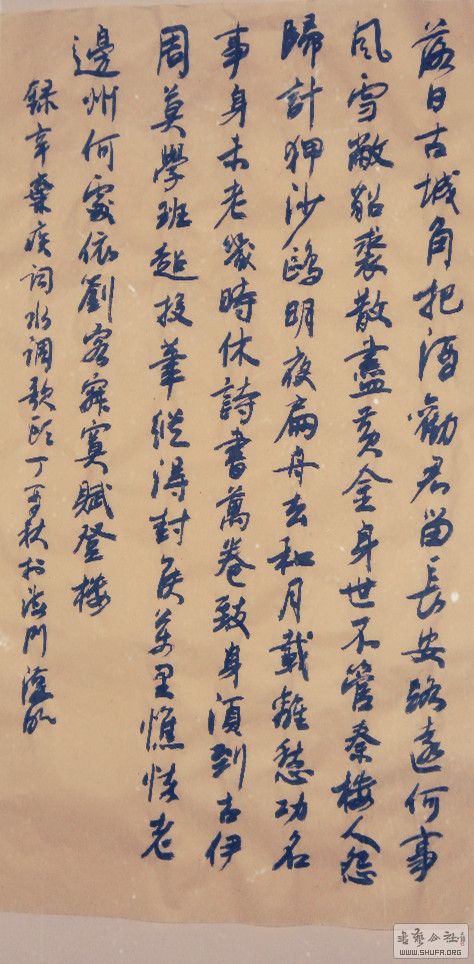 落日古城角把酒勸君留長安路遠何事
風雪敝貂裘散盡黃金身世不管秦樓人怨
歸計狎沙鷗明夜扁舟去和月載離愁功名
事身未老幾時休詩書萬卷致身須到古伊
周莫學班超投筆縱得封侯萬里憔悴老
邊州何處依劉客寂寞賦登樓
錄辛棄疾詞水調歌頭丁酉秋於海門
書藝公社
WWW.SHUFA.ORG